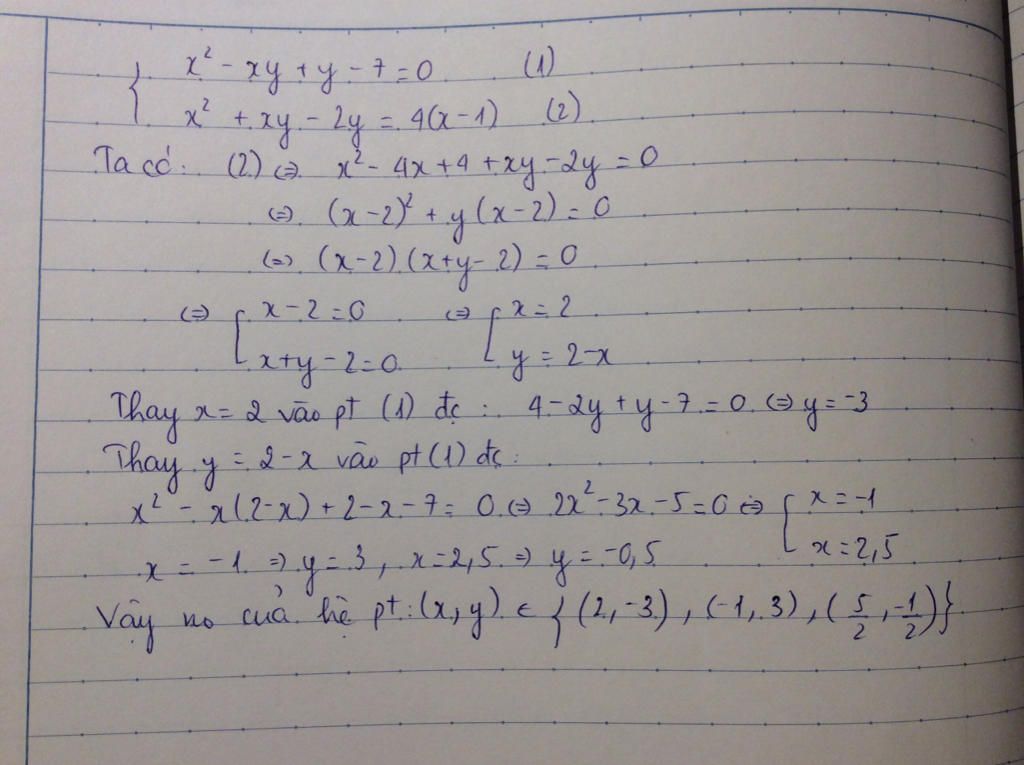 { x² - xy + y - 7 = 0 (1)
x² + xy - 2y = 4(x-1) (2)
Ta có: (2) ⇔ x² - 4x + 4 + xy - 2y = 0
⇔ (x-2)² + y(x-2) = 0
⇔ (x-2)(x+y-2) = 0
⇔ [ x-2=0 ⇔ [ x=2
x+y-2=0 y=2-x
Thay x=2 vào pt (1) đc: 4-2y+y-7=0 ⇔ y=-3
Thay y=2-x vào pt (1) đc:
x² - x(2-x)+2-x-7=0 ⇔ 2x²-3x-5=0 ⇔ [ x=-1
x=2,5
x=-1 ⇒ y=3, x=2,5 ⇒ y=-0,5
Vậy no của hệ pt: (x,y) ∈ {(2,-3), (-1,3), (5/2, -1/2)}